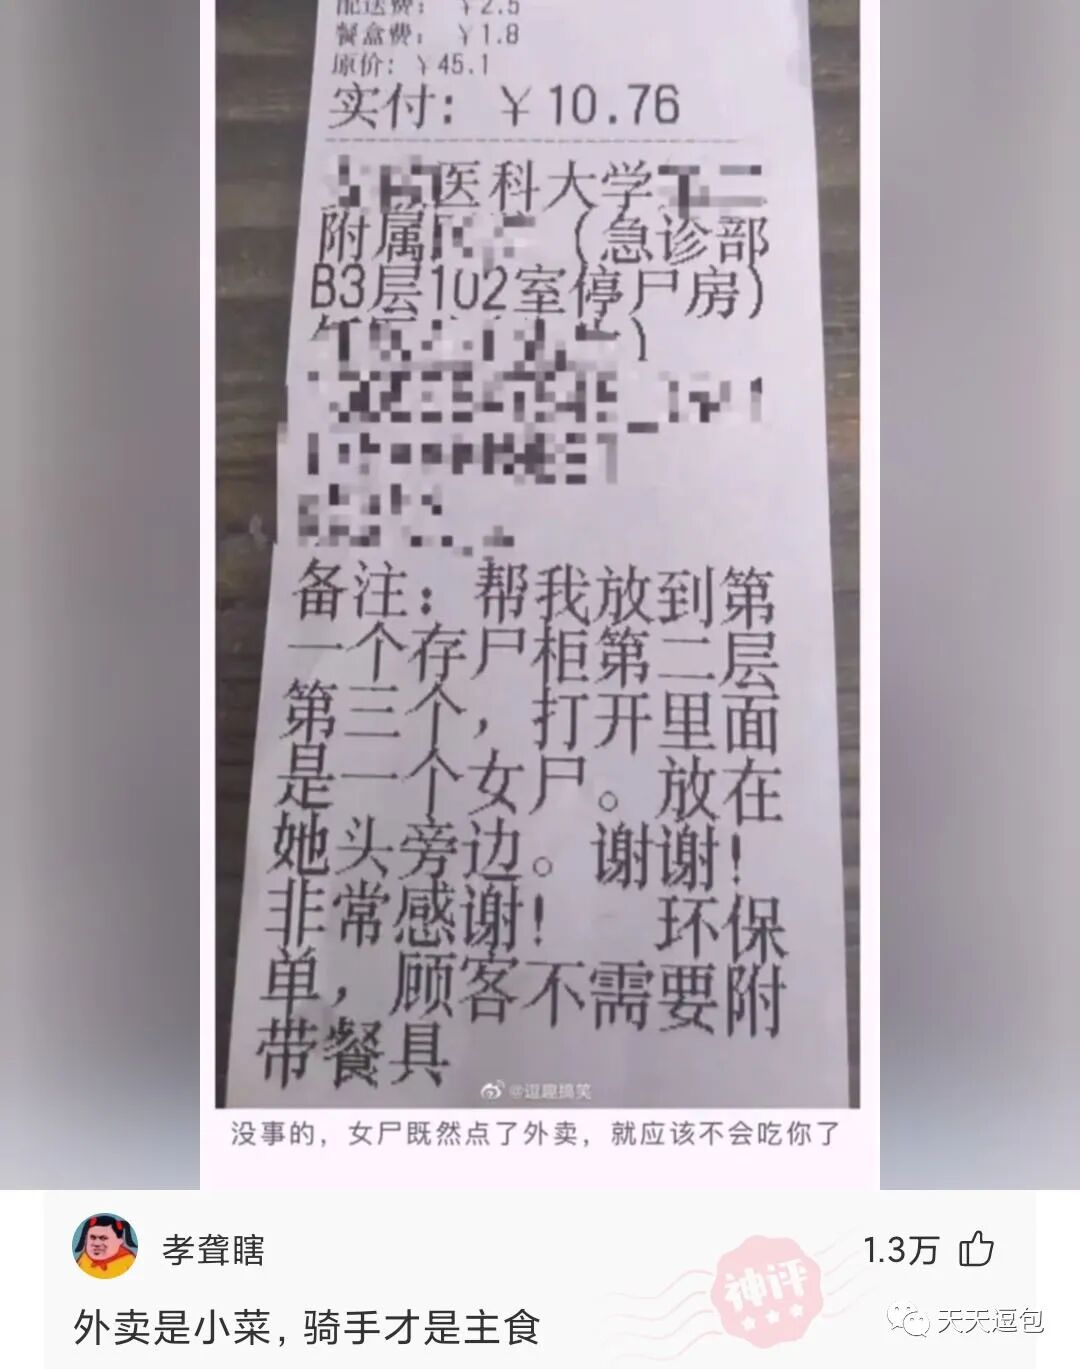 配送费： ￥2.5
餐盒费： ￥1.8
原价：￥45.1
实付：￥10.76
医科大学
附属 （急诊部
B3层102室停尸房）
备注：帮我放到第
一个存尸柜第二层
第三个，打开里面
是一个女尸。放在
她头旁边。谢谢！
非常感谢！ 环保
单，顾客不需要附
带餐具
@逗趣搞笑
没事的，女尸既然点了外卖，就应该不会吃你了
孝聋瞎
1.3万
神评
外卖是小菜，骑手才是主食
天天逗包